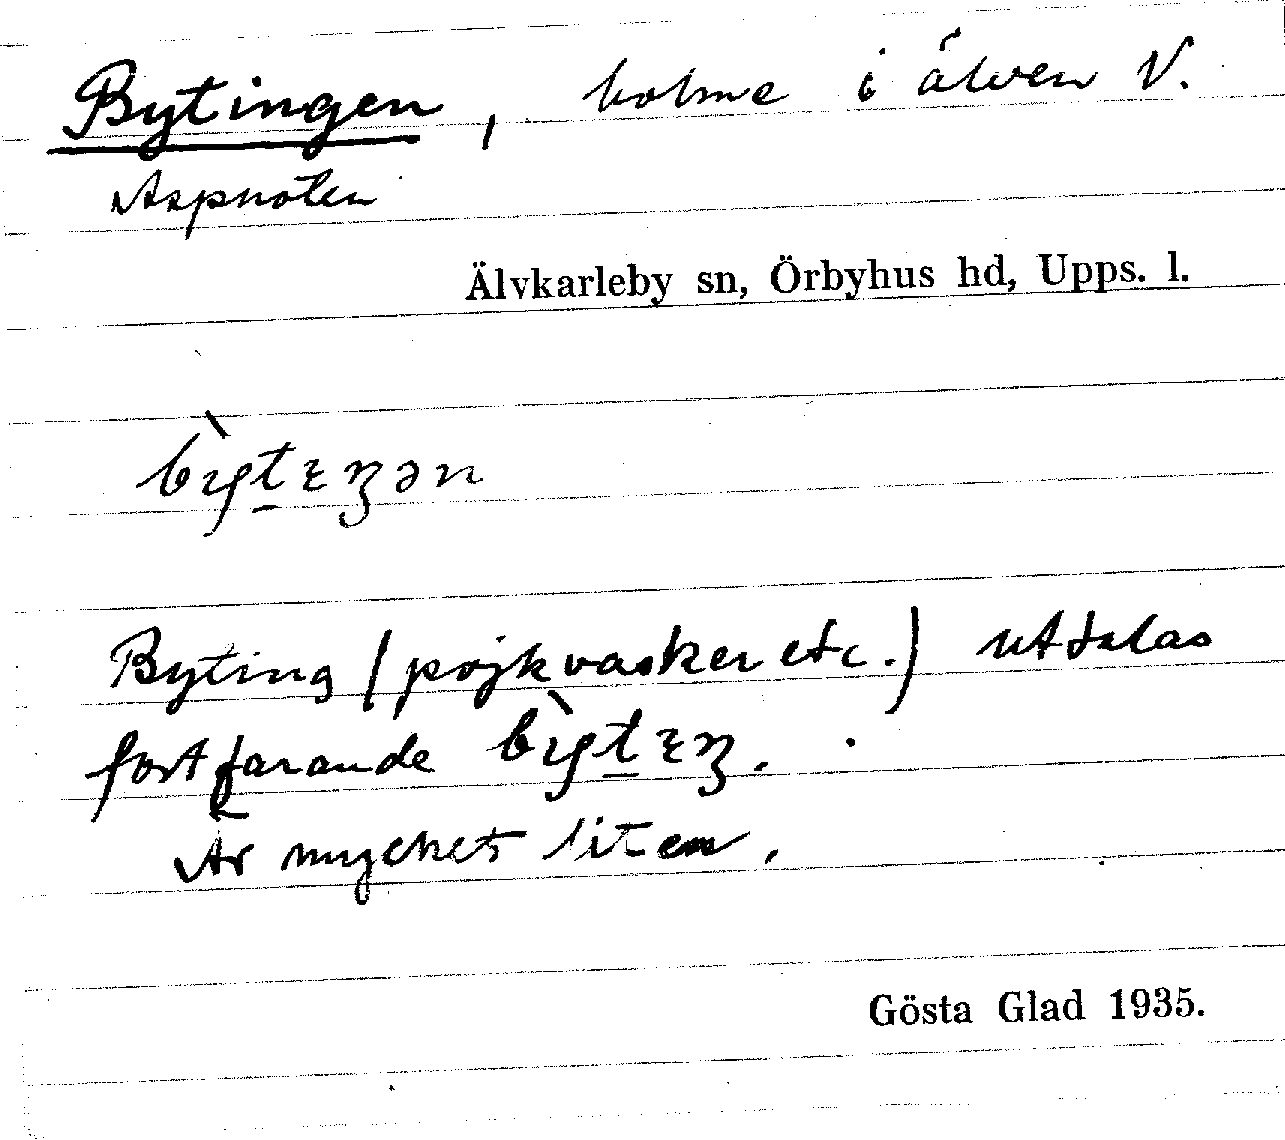 Bytingen, holme i älven V.
Aspnoten
Älvkarleby sn, Örbyhus hd, Upps. l.
Byting (pojkvasker etc.) uttalas
fortfarande
Är mycket liten.
Gösta Glad 1935.